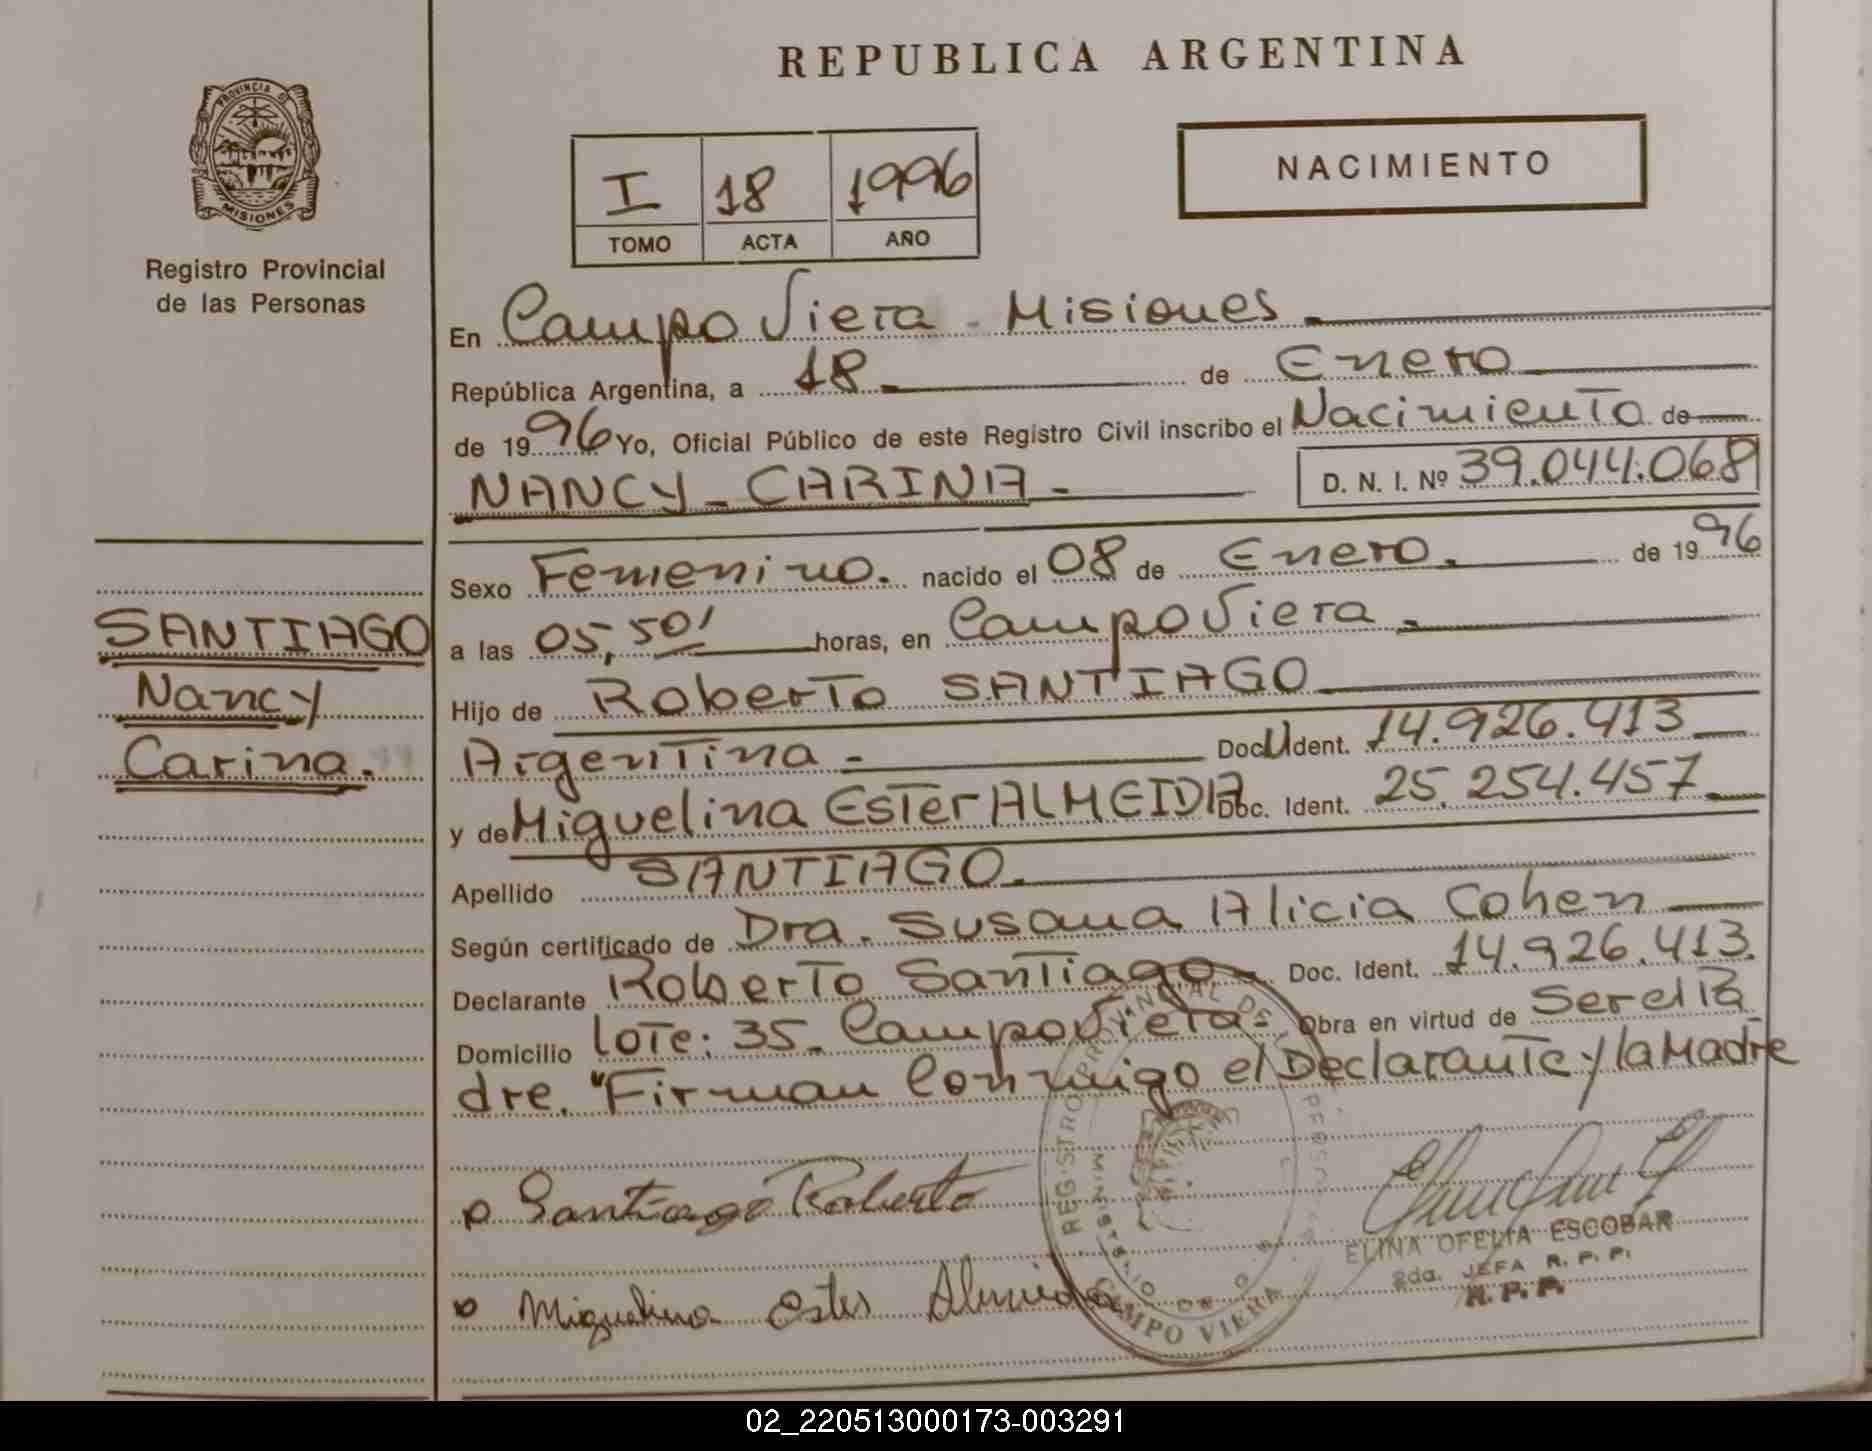 REPUBLICA ARGENTINA
PROVINCIA DE
MISIONES
Registro Provincial
de las Personas
I 18 1996
TOMO ACTA AÑO
NACIMIENTO
En Campo Viera - Misiones
República Argentina, a 18 de Enero
de 1996 Yo, Oficial Público de este Registro Civil inscribo el Nacimiento de
NANCY - CARINA - D. N. I. Nº 39.044.068
Sexo Femenino. nacido el 08 de Enero. de 1996
SANTIAGO
Nancy
Carina.
a las 05,50' horas, en Campo Viera.
Hijo de Roberto SANTIAGO
Argentina - Doc. Ident. 14.926.413
y de Miguelina Ester ALMEIDA Doc. Ident. 25.254.457
Apellido SANTIAGO.
Según certificado de Dra. Susana Alicia Cohen
Declarante Roberto Santiago - Doc. Ident. 14.926.413.
Domicilio Lote: 35. Campo Viera - Obra en virtud de Ser el Pa
dre. "Firman Conmigo el Declarante y la Madre
Santiago Roberto
Miguelina Ester Almeida
REGISTRO PROVINCIAL DE LAS PERSONAS
MINISTERIO DE GO
CAMPO VIERA
ELINA OFELIA ESCOBAR
2da. JEFA R. P. P.
R. P. P.
02_220513000173-003291